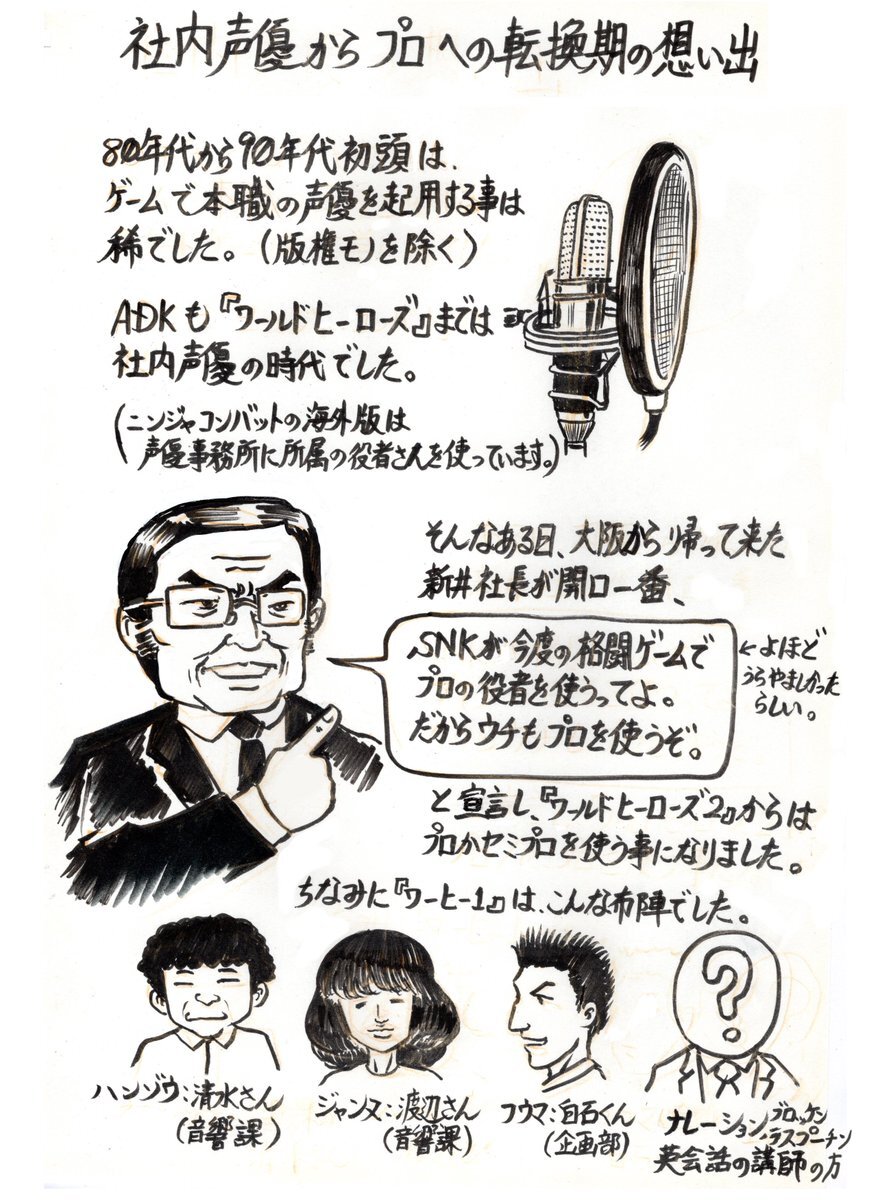 社内声優からプロへの転換期の想い出
80年代から90年代初頭は、
ゲームで本職の声優を起用する事は
稀でした。(版権モノを除く)
ADKも『ワールドヒーローズ』までは
社内声優の時代でした。
(ニンジャコンバットの海外版は
声優事務所に所属の役者さんを使っています。)
そんなある日、大阪から帰って来た
新井社長が開口一番、
SNKが今度の格闘ゲームで
プロの役者を使うってよ。
だからウチもプロを使うぞ。
←よほど
うらやましかった
らしい。
と宣言し、『ワールドヒーローズ2』からは
プロかセミプロを使う事になりました。
ちなみに『ワーヒー1』は、こんな布陣でした。
?
ハンゾウ:清水さん
(音響課)
ジャンヌ:渡辺さん
(音響課)
フウマ:白石くん
(企画部)
ナレーション、ブロッケン
ラスプーチン
英会話の講師の方